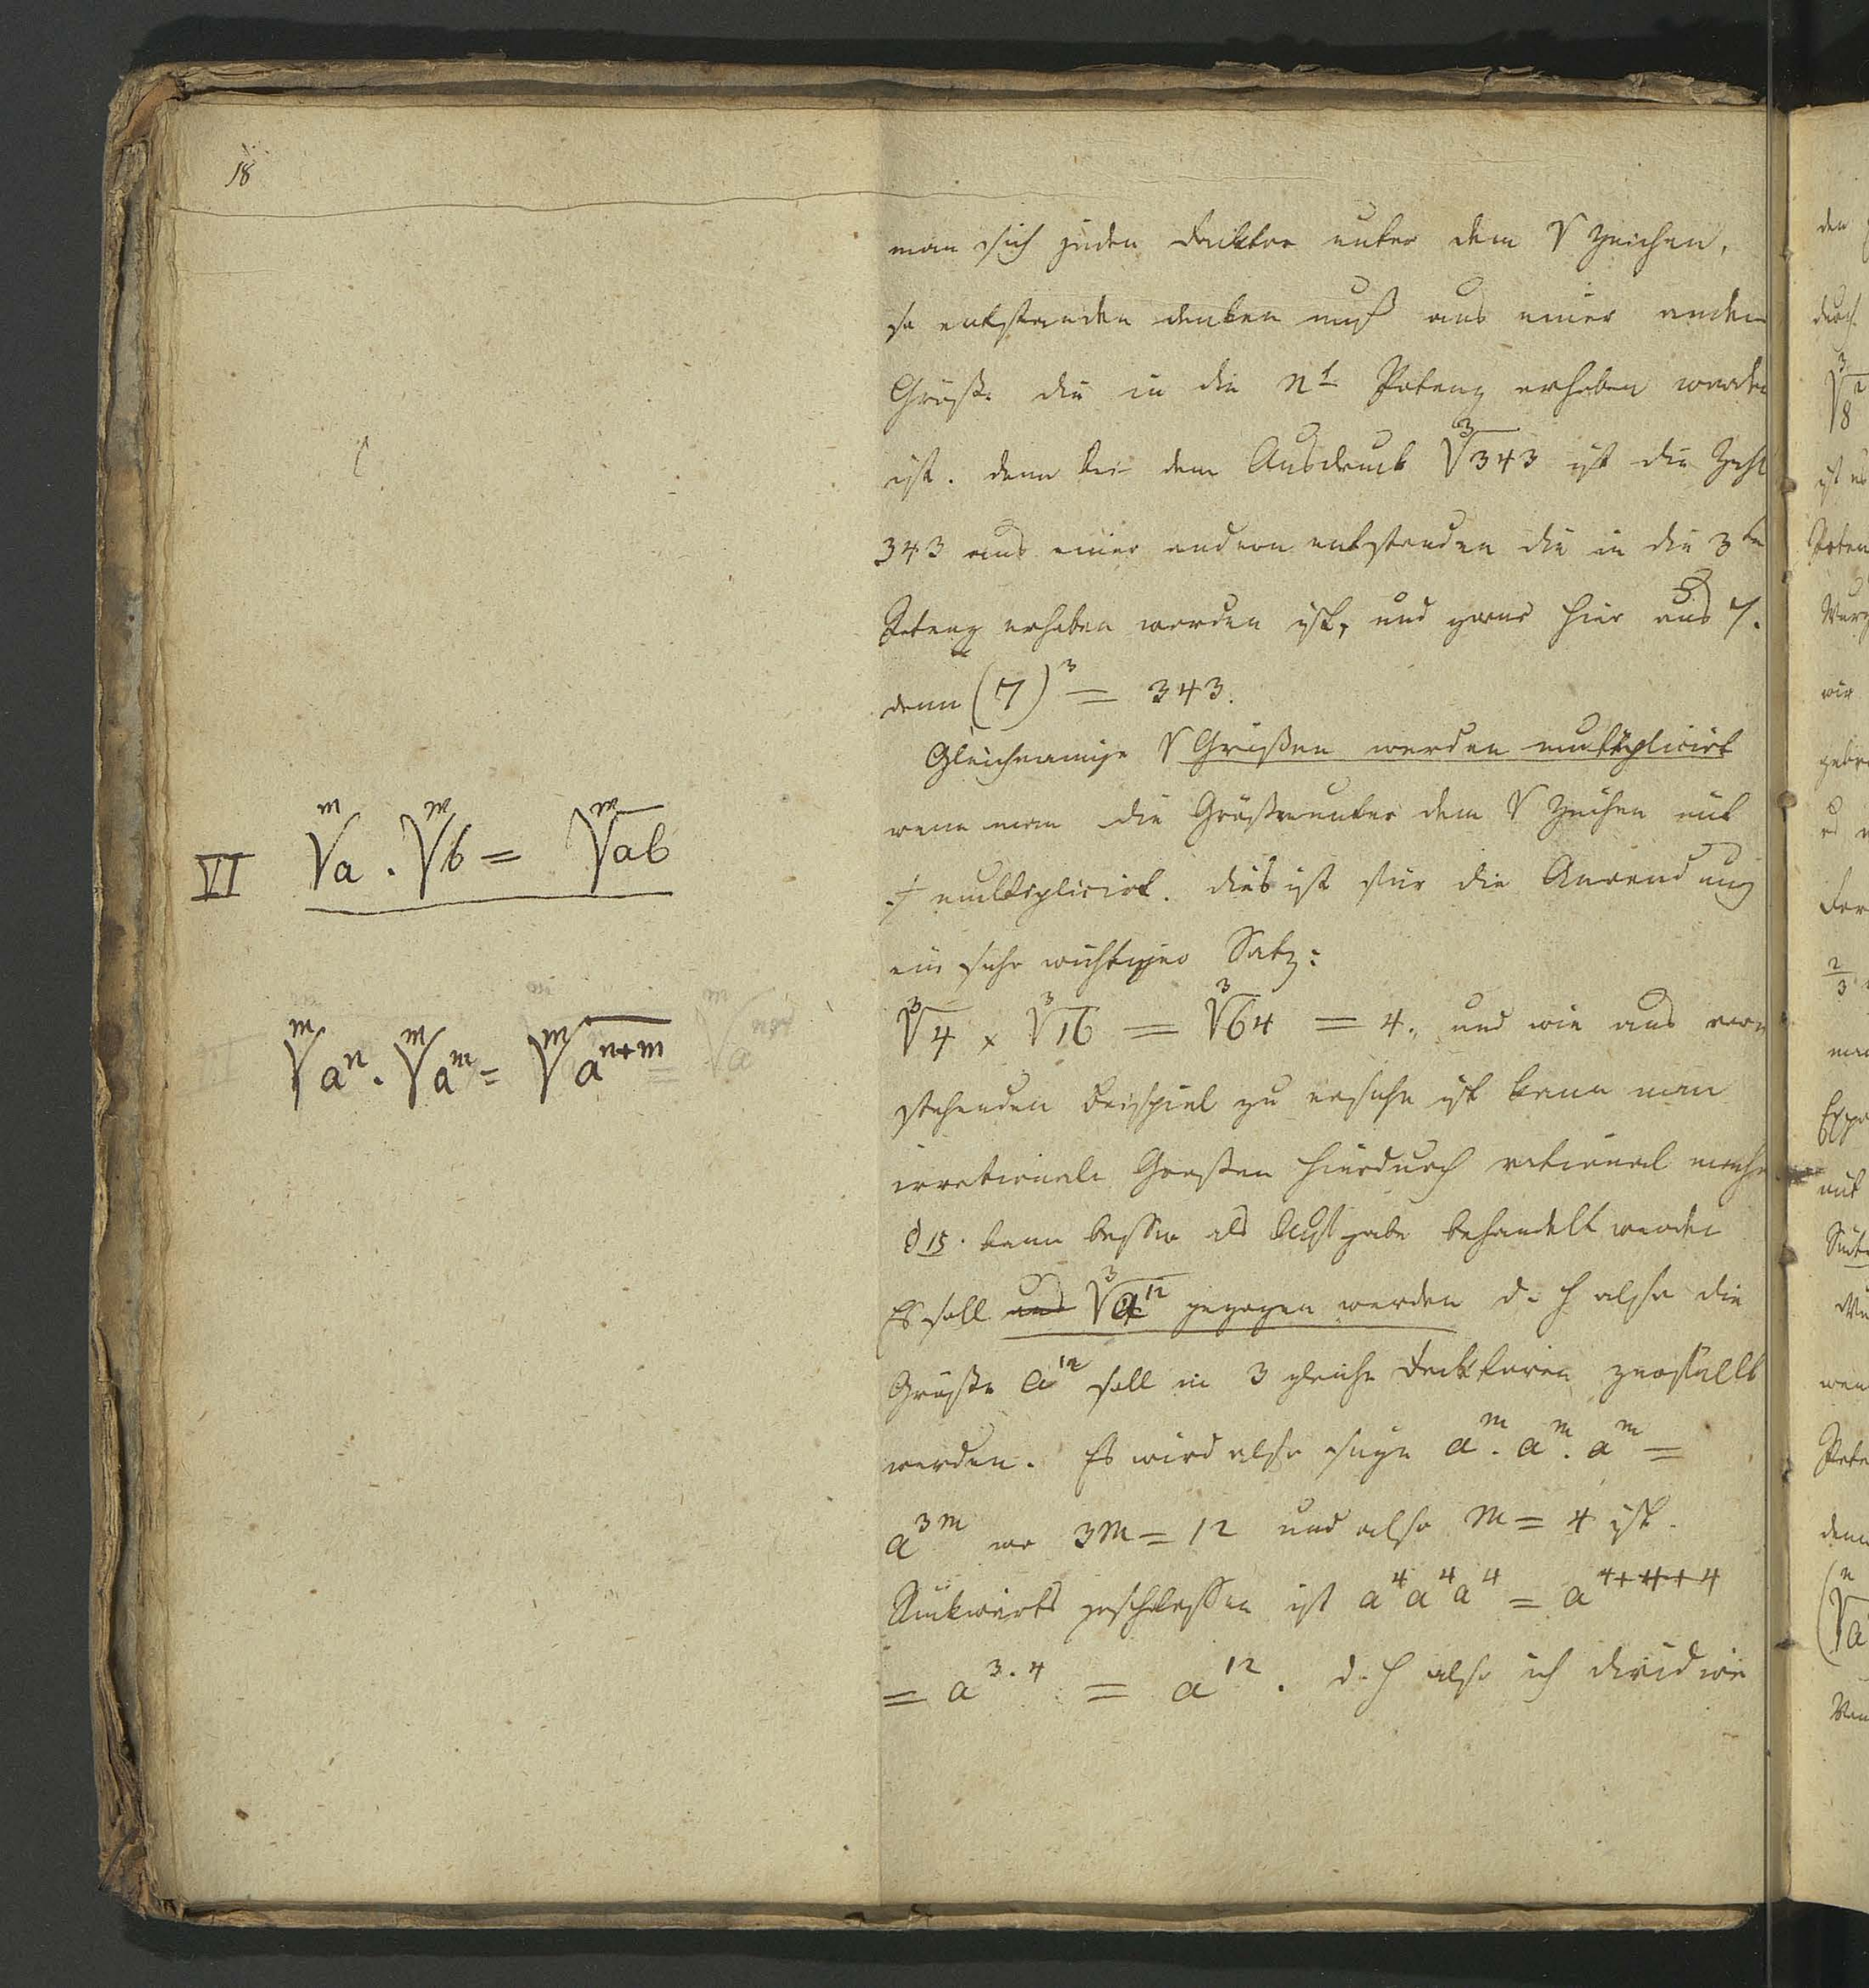 18
man sich jeden Faktor unter dem √ Zeichen,
so entstanden denken muß aus einer andern
Größe die in die nt Potenz erhoben worden
ist. denn bei dem Ausdruck ∛343 ist die Zahl
343 aus einer andern entstanden die in die 3te
Potenz erhoben worden ist, und zwar hier aus 7.
denn (7)³ = 343.
Gleichnamige √ Größen werden multiplicirt
wenn man die Größen unter dem √ Zeichen mit
multiplicirt. dies ist für die Anwendung
ein sehr wichtiger Satz:
∛4 × ∛16 = ∛64 = 4. und wie aus vor
stehenden Beispiel zu ersehn ist kann man
irrationale Großen hierdurch rational machen
§ 15. kann besser als Aufgabe behandelt werden
Es soll aus ∛a¹² gezogen werden d. h also die
Größe a¹² soll in 3 gleiche Facktoren zerfällt
werden. Es wird also seyn aᵐ. aᵐ. aᵐ =
a³ᵐ wo 3m = 12 und also m = 4 ist.
Rückwärts geschlossen ist a⁴a⁴a⁴ = a⁴⁺⁴⁺⁴
= a³·⁴ = a¹². d. h also ich dividire
VI ᵐ√a . ᵐ√b = ᵐ√ab
ᵐ√aⁿ . ᵐ√aᵐ = ᵐ√aⁿ⁺ᵐ